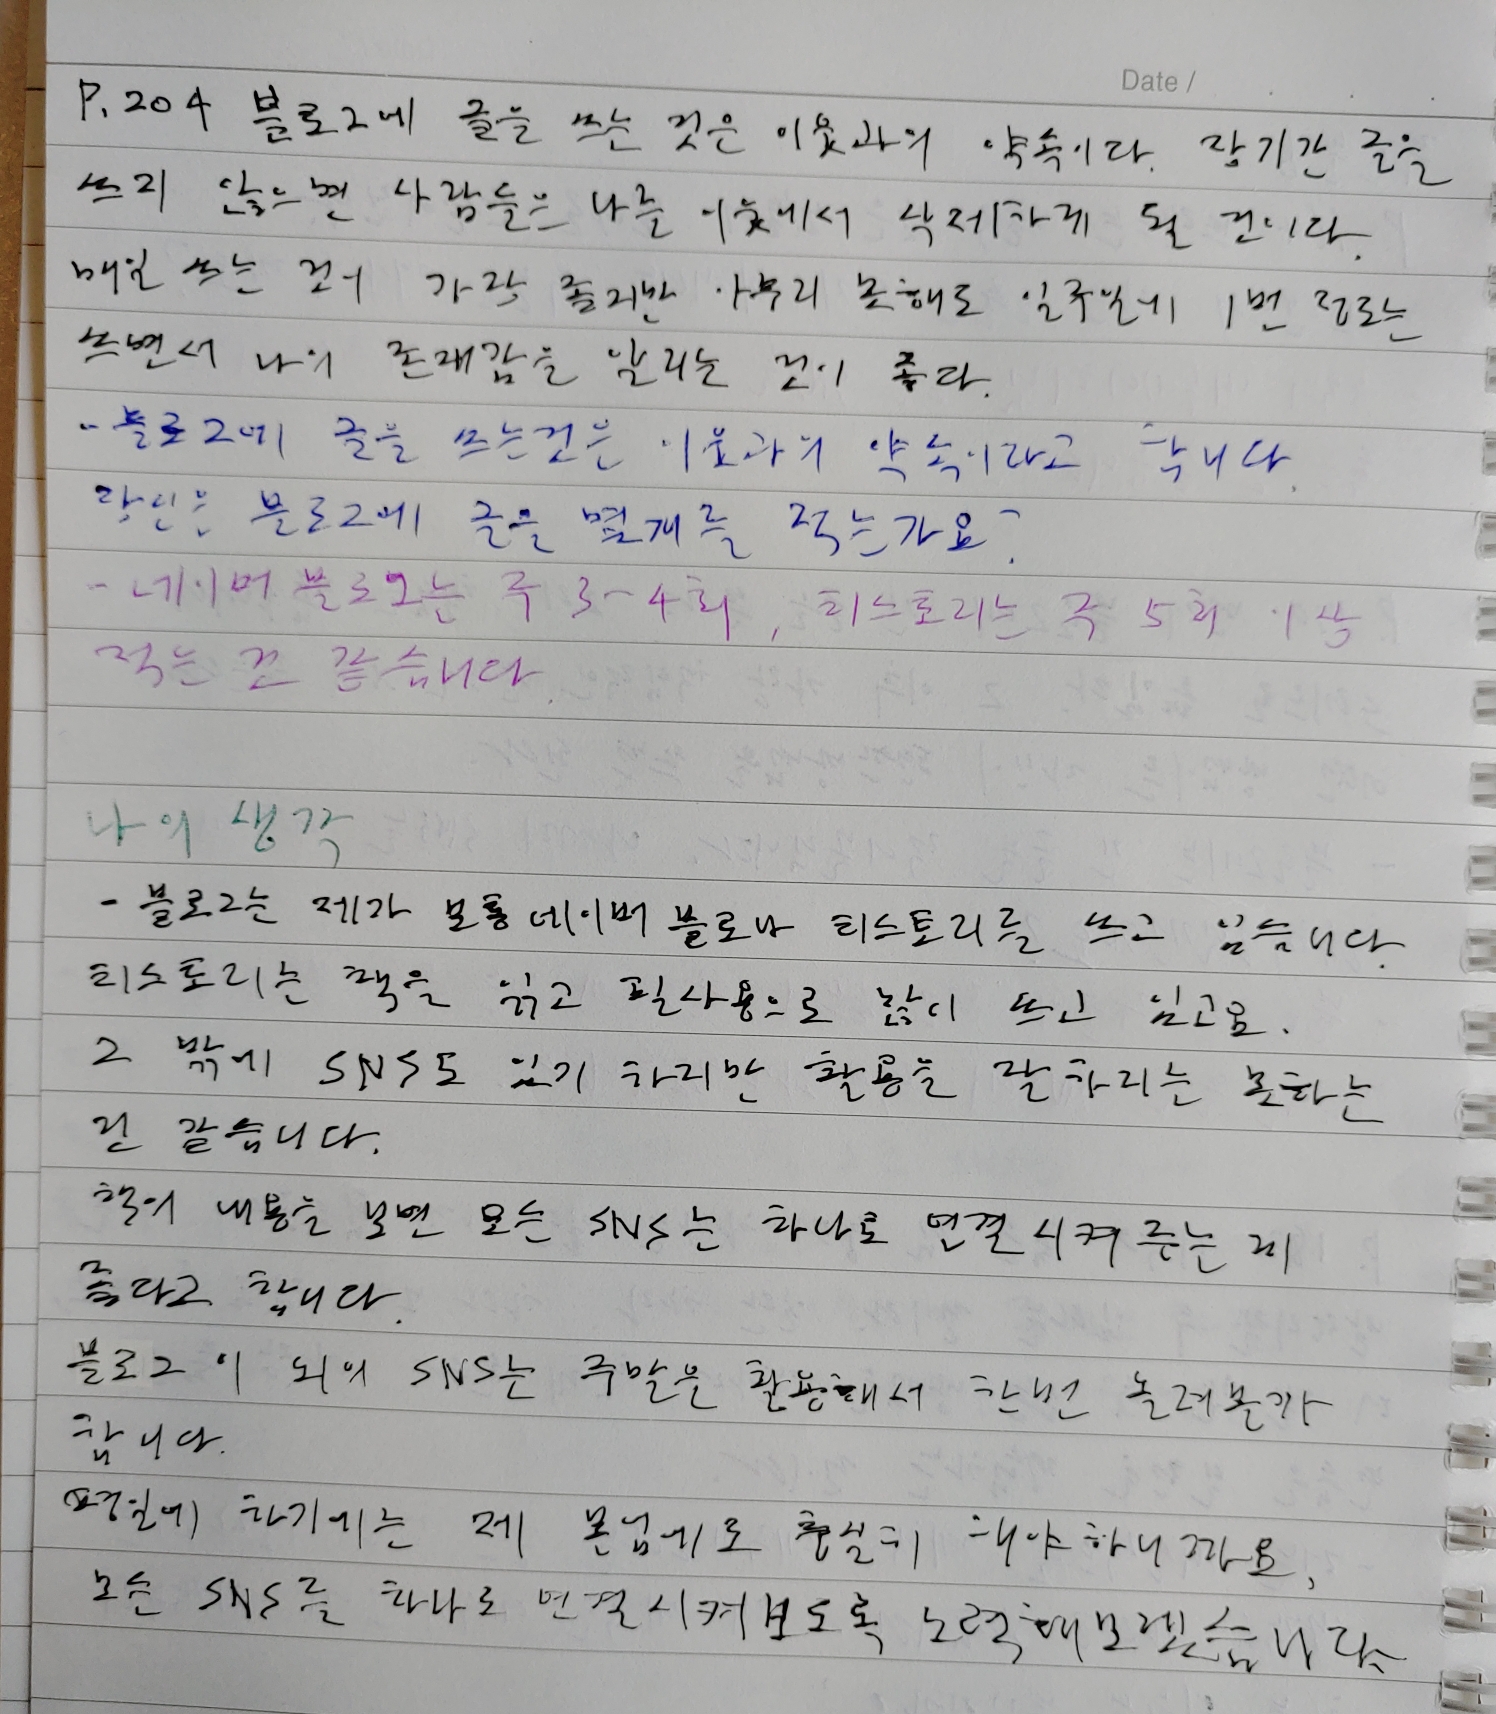 Date /
P.204 블로그에 글을 쓰는 것은 이웃과의 약속이다. 장기간 글을
쓰지 않으면 사람들은 나를 이웃에서 삭제하게 될 것이다.
매일 쓰는 것이 가장 좋지만 아무리 못해도 일주일에 1번 정도는
쓰면서 나의 존재감을 알리는 것이 좋다.
- 블로그에 글을 쓰는것은 이웃과의 약속이라고 합니다.
당신은 블로그에 글을 몇개를 적는가요?
- 네이버 블로그는 주 3~4회, 티스토리는 주 5회 이상
적는 것 같습니다.
나의 생각
- 블로그는 제가 보통 네이버 블로나 티스토리를 쓰고 있습니다.
티스토리는 책을 읽고 필사용으로 많이 쓰고 있고요.
그 밖에 SNS도 있기 하지만 활용을 잘하지는 못하는
것 같습니다.
책의 내용을 보면 모든 SNS는 하나로 연결시켜 주는 게
좋다고 합니다.
블로그 이 외의 SNS는 주말을 활용해서 한번 늘려볼까
합니다.
평일에 하기에는 제 본업에도 충실히 해야하니까요,
모든 SNS를 하나로 연결시켜보도록 노력해보겠습니다.